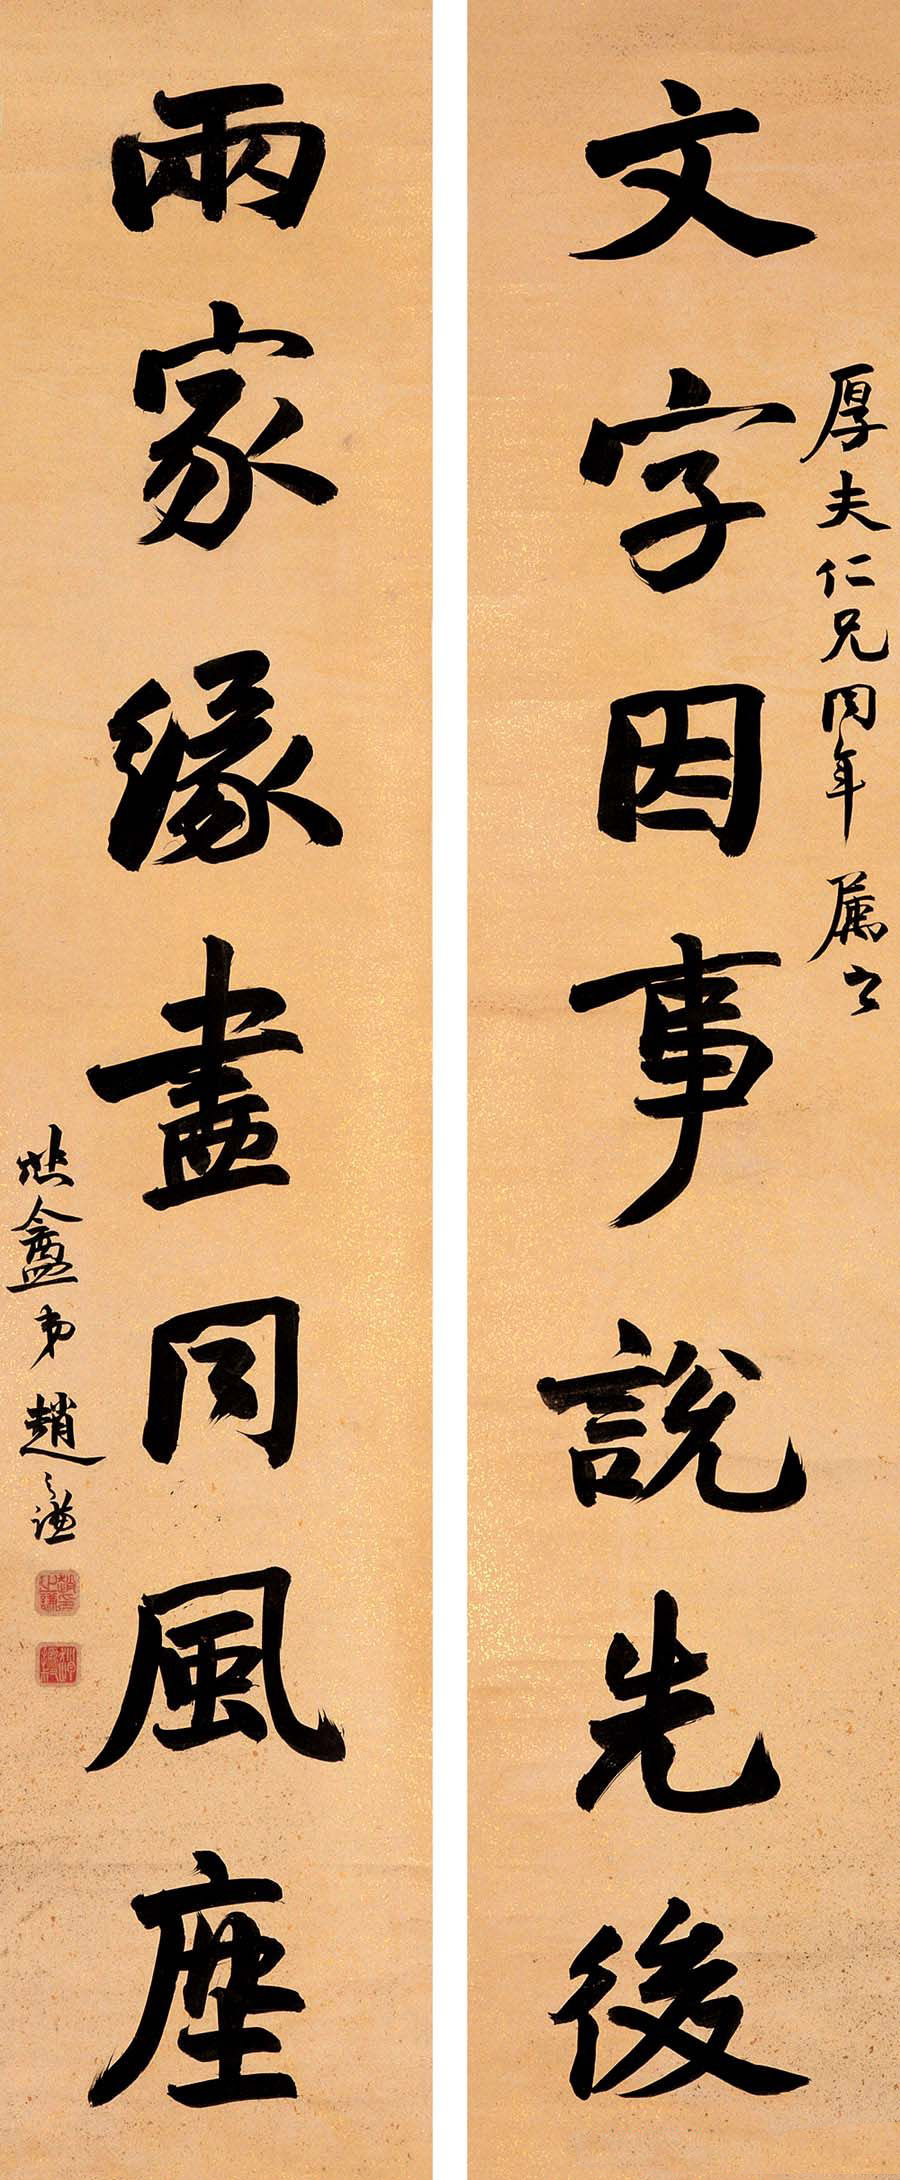 文字因事說先後
厚夫仁兄同年屬
兩家緣畫同風塵
悲盦弟趙之謙
趙印之謙